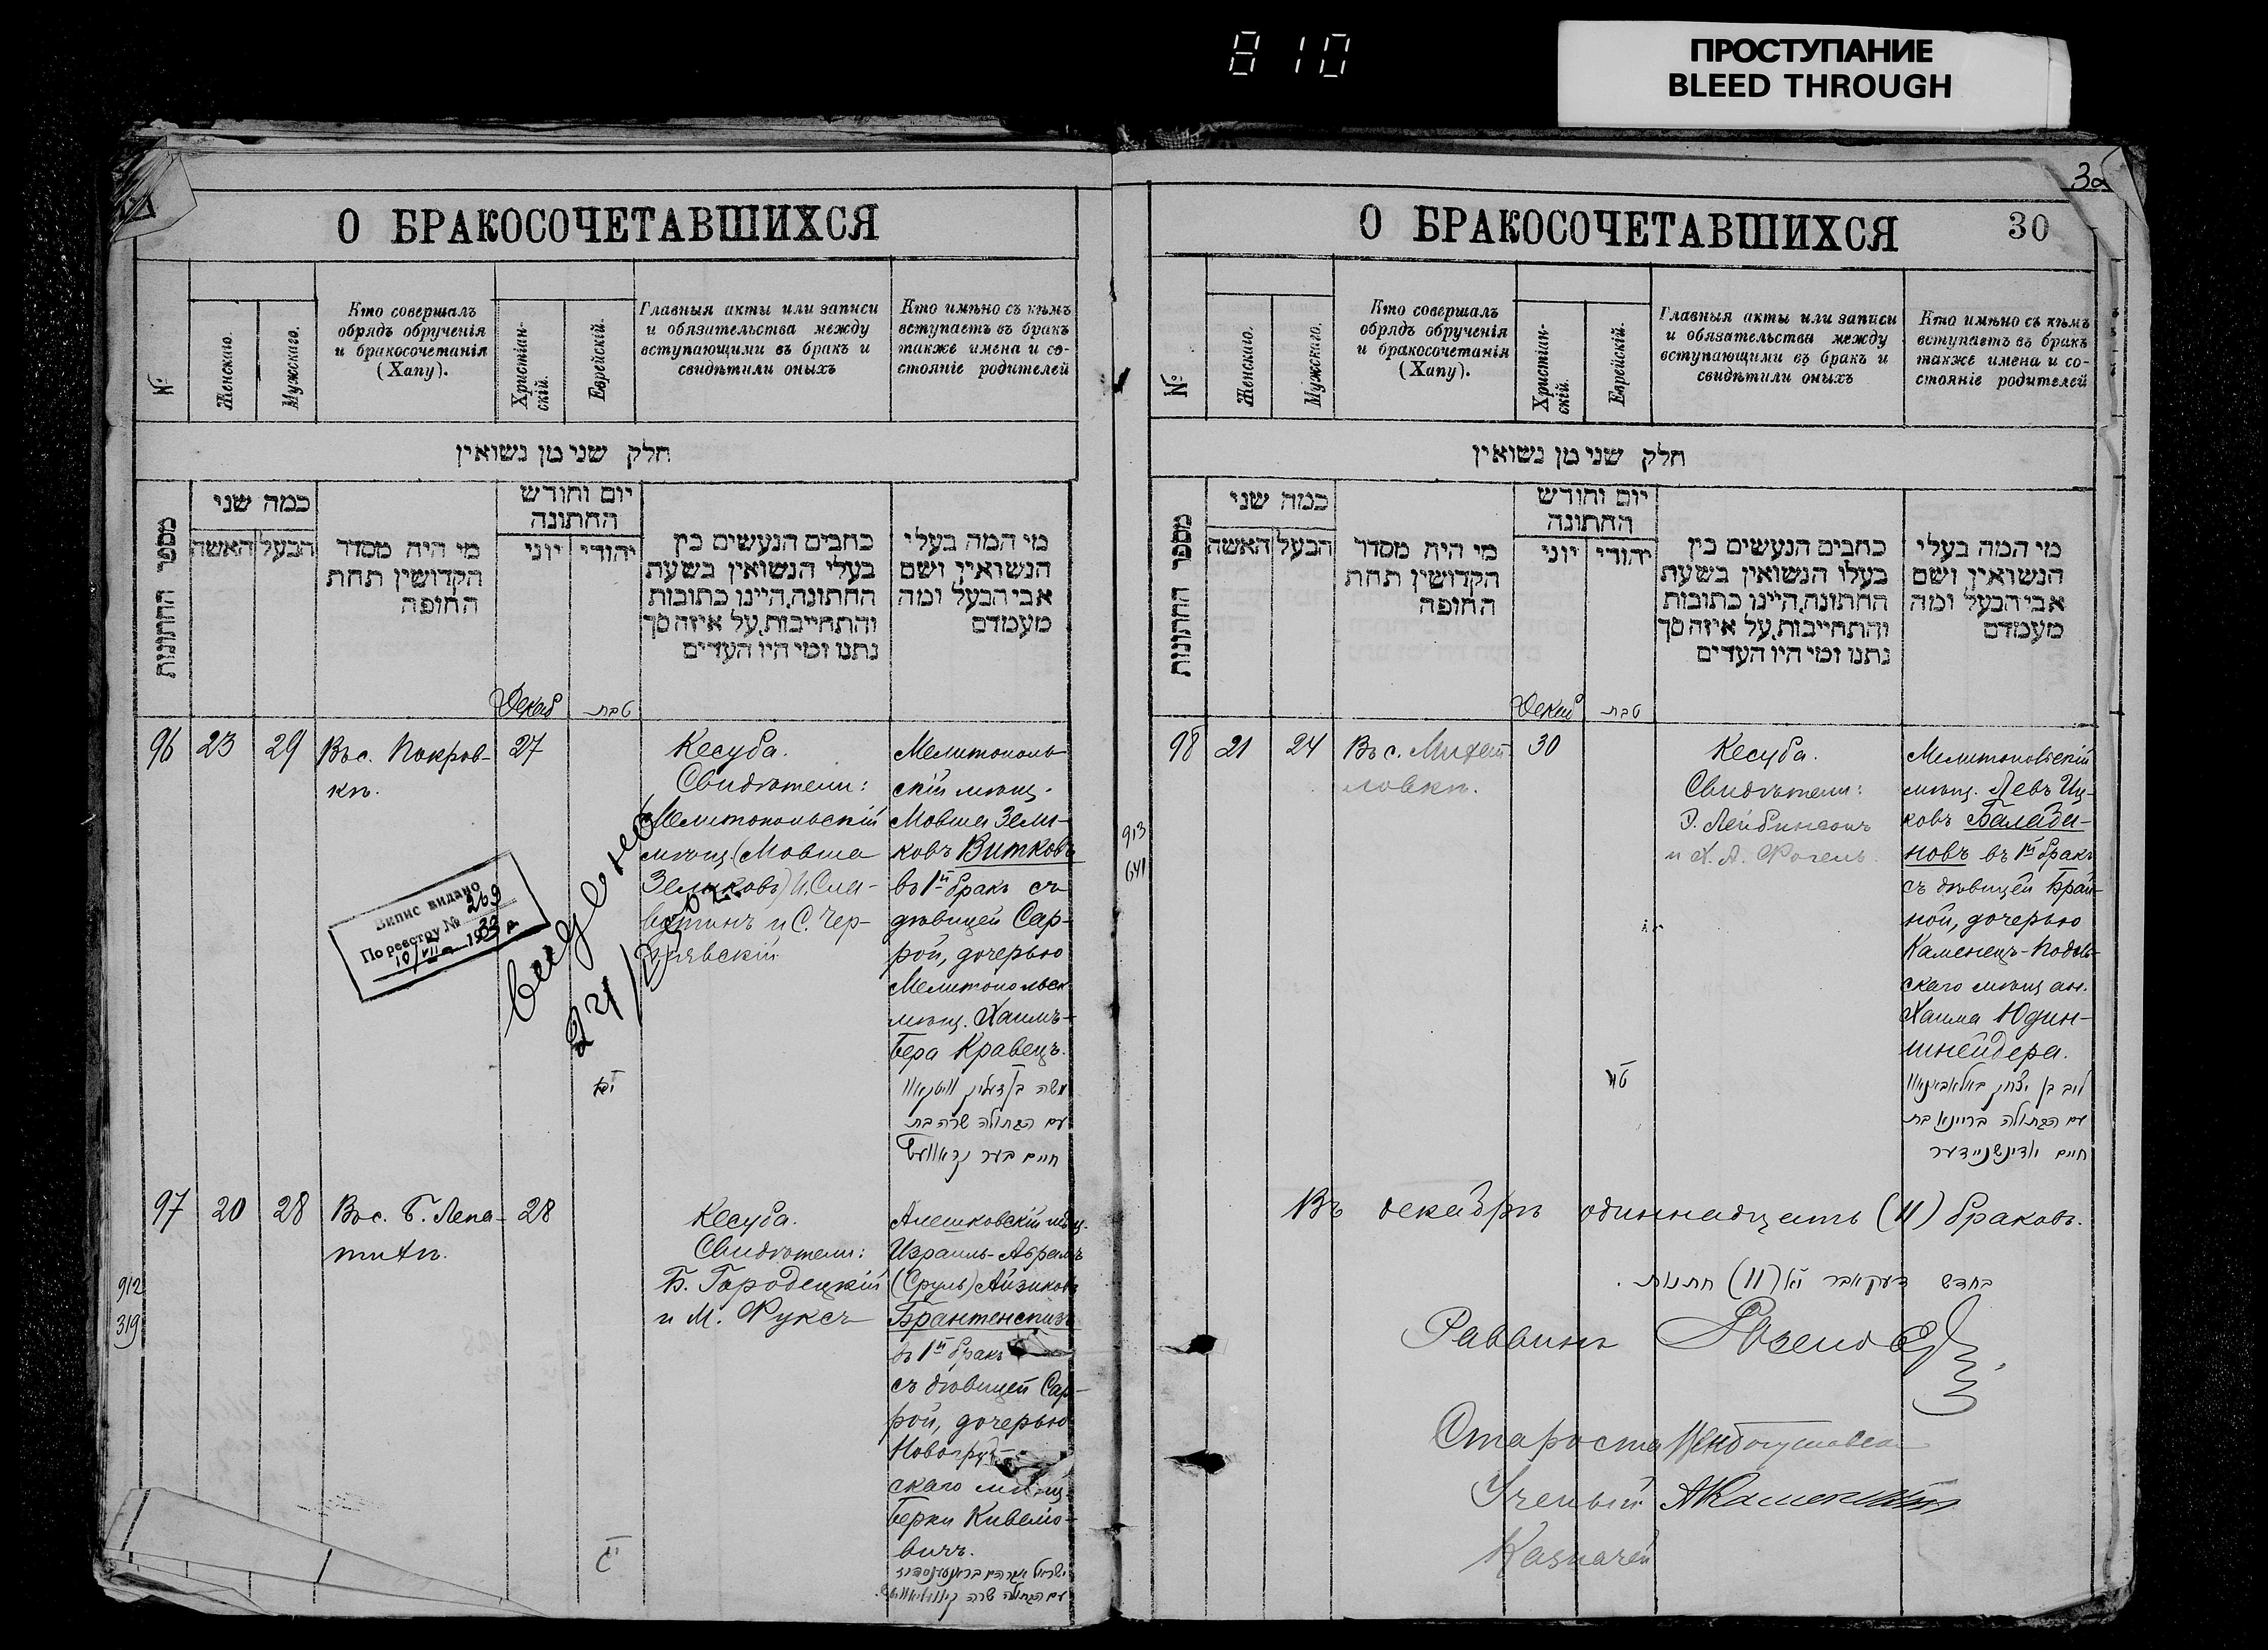 810
ПРОСТУПАНИЕ
BLEED THROUGH
О БРАКОСОЧЕТАВШИХСЯ
№
Женскаго.
Мужскаго.
Кто совершалъ
обрядъ обрученія
и бракосочетанія
(Хапу).
Христіан-
скій.
Еврейскій.
Главныя акты или записи
и обязательства между
вступающими въ бракъ и
свидѣтили оныхъ
Кто имѣно съ кѣмъ
вступаетъ въ бракъ
также имена и со-
стояніе родителей
חלק שני מן נשואין
מספר החתונות
כמה שני
האשה
הבעל
מי היה מסדר
הקדושין תחת
החופה
יום וחודש
החתונה
יוני
יהודי
כתבים הנעשים בין
בעלי הנשואין בשעת
החתונה, היינו כתובות
והתחייבות, על איזה סך
נתנו ומי היו העדים
מי המה בעלי
הנשואין ושם
אבי הבעל ומה
מעמדם
Декаб
טבת
96
23
29
Въ с. Покров-
кѣ.
27
Кесуба.
Свидѣтели:
Мелитопольскій
мѣщ. (Мовша
Зельковъ) И. Сла-
и С. Чер-
Мелитополь-
скій мѣщ.
Мовша Зель-
ковъ Витковъ
въ 1й бракъ съ
дѣвицей Сар-
рой, дочерью
Мелитопольск.
мѣщ. Хаимъ-
Бера Кравецъ.
משה בן זעליק וויטקאוו
עם הבתולה שרה בת
חיים בער קראוועץ
Випис видано
По реєстру № 269
10/VII 1939 р
97
20
28
Въ с. Б. Лепа-
тихѣ.
28
Кесуба.
Свидѣтели:
Б. Городецкій
и М. Фуксъ
Алешковскій мѣщ.
Израиль-Абрамъ
(Сруль) Айзиковъ
Брантенспизъ
въ 1й бракъ
съ дѣвицей Сар-
рой, дочерью
скаго мѣщ.
Берки Кивело-
вичъ.
912
319
30
О БРАКОСОЧЕТАВШИХСЯ
30
№
Женскаго.
Мужскаго.
Кто совершалъ
обрядъ обрученія
и бракосочетанія
(Хапу).
Христіан-
скій.
Еврейскій.
Главныя акты или записи
и обязательства между
вступающими въ бракъ и
свидѣтили оныхъ
Кто имѣно съ кѣмъ
вступаетъ въ бракъ
также имена и со-
стояніе родителей
חלק שני מן נשואין
מספר החתונות
כמה שני
האשה
הבעל
מי היה מסדר
הקדושין תחת
החופה
יום וחודש
החתונה
יוני
יהודי
כתבים הנעשים בין
בעלו הנשואין בשעת
החתונה, היינו כתובות
והתחייבות, על איזה סך
נתנו ומי היו העדים
מי המה בעלי
הנשואין ושם
אבי הבעל ומה
מעמדם
Декаб
טבת
913
641
98
21
24
Въ с. Михай-
ловкѣ.
30
Кесуба.
Свидѣтели:
Э. Лейбинсонъ
и Х. А. Фогель.
Мелитопольскій
мѣщ. Левъ Иц-
ковъ Балаби-
новъ въ 1й бракъ
съ дѣвицей Брай-
ной, дочерью
Каменецъ-Подоль-
скаго мѣщан.
Хаима Юдин-
шнейдера.
ליב בן יצחק באלאבינאוו
עם הבתולה בריינא בת
חיים יודינשניידער
Въ декабрѣ одиннадцать (11) браковъ.
בחדש דעקאבר יא (11) חתנות.
Раввинъ
Староста
Ученый
Казначей